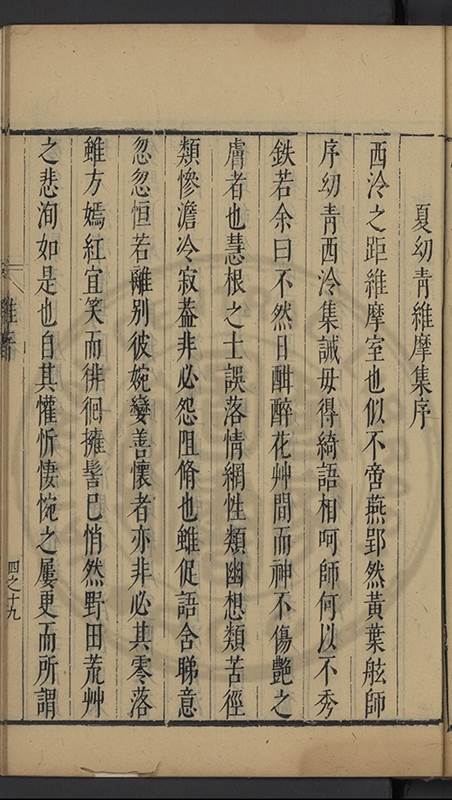 夏幼青維摩集序
西泠之距維摩室也似不啻燕郢然黃葉舷師
序幼青西泠集誡毋得綺語相呵師何以不秀
鉄若余曰不然日酣醉花艸間而神不傷艷之
膚者也慧根之士誤落情網性類幽想類苦徑
類慘澹冷寂葢非必怨阻脩也雖促語含睇意
忽忽恒若離别彼婉孌善懷者亦非必其零落
雖方嫣紅宜笑而徘徊擁髻已悄然野田荒艸
之悲洵如是也自其懽忻悽惋之屢更而所謂
四之十九